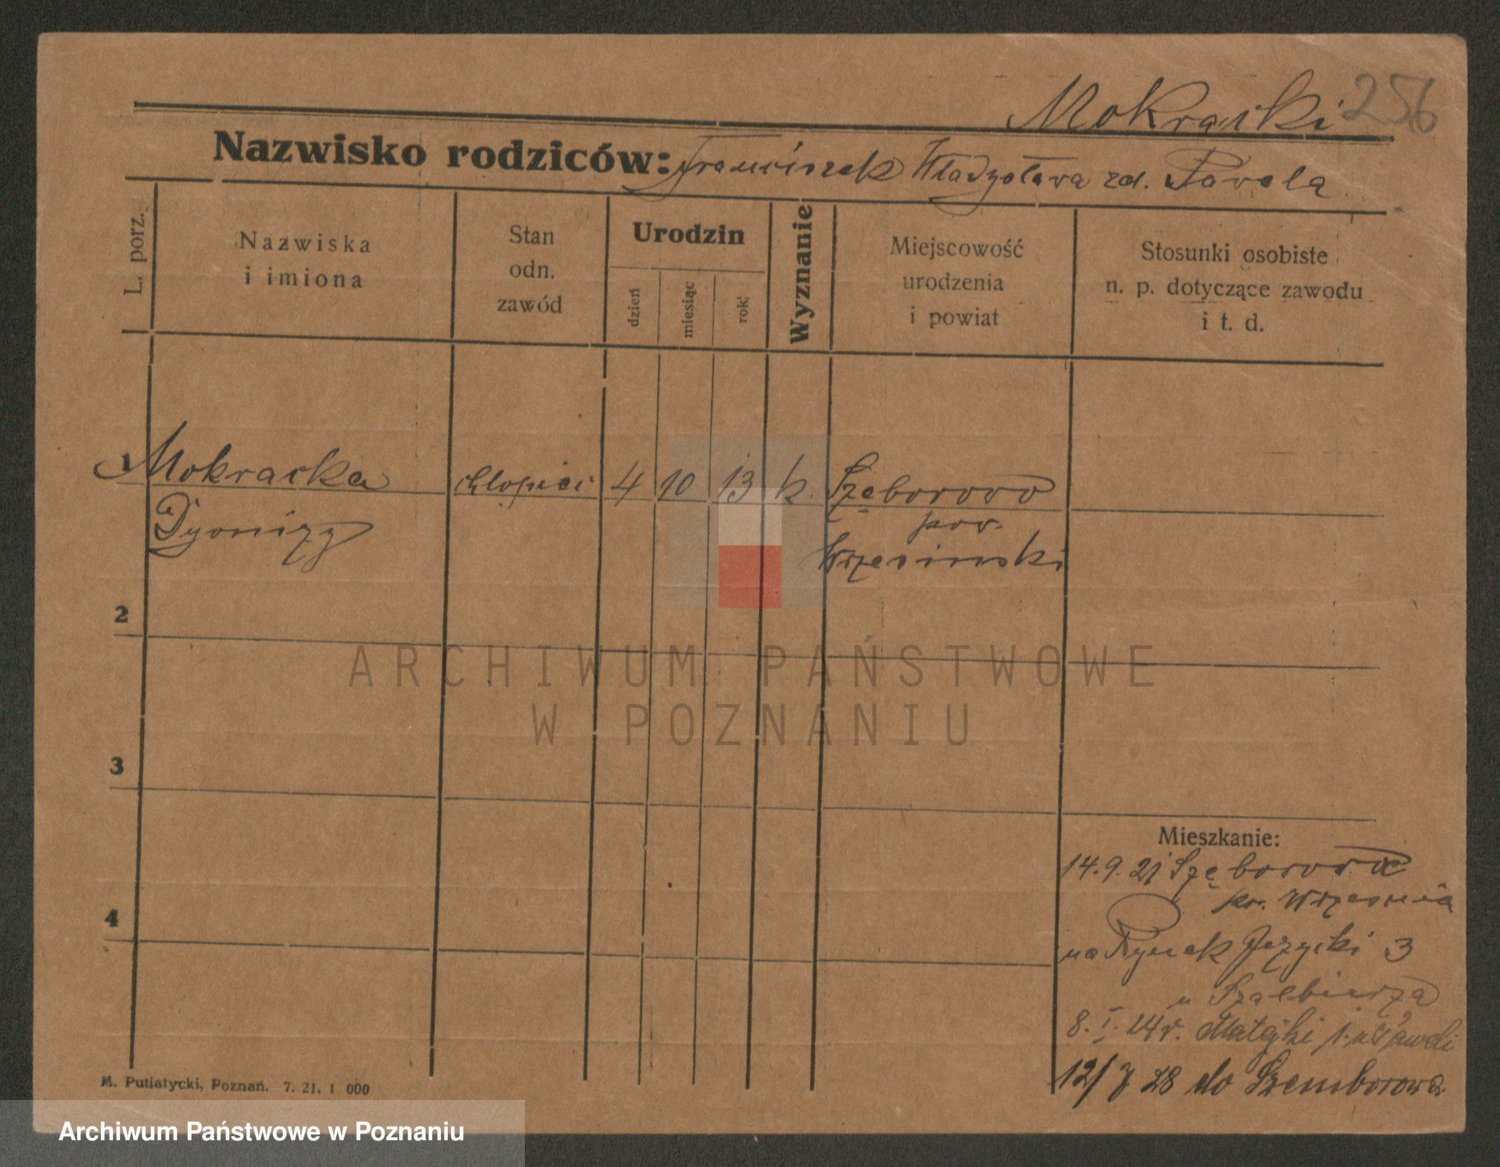 Mokracki 256
Nazwisko rodziców: Franciszek Władysława zd. Pawela
L. porz.
Nazwiska
i imiona
Stan
odn.
zawód
Urodzin
dzień
miesiąc
rok
Wyznanie
Miejscowość
urodzenia
i powiat
Stosunki osobiste
n. p. dotyczące zawodu
i t. d.
1 Mokracka chłopiec 4 10 13 k. Szęborowo
Dyonizy pow.
Wrzesinski
2
ARCHIWUM PAŃSTWOWE
W POZNANIU
3
Mieszkanie:
14.9.21 Szęborowo
pow. Września
4
na Rynek Jezycki 3
u
8. I. 24 r. Matejki
12/ 28 do Szemborowa
M. Putiatycki, Poznań. 7. 21. 1 000
Archiwum Państwowe w Poznaniu